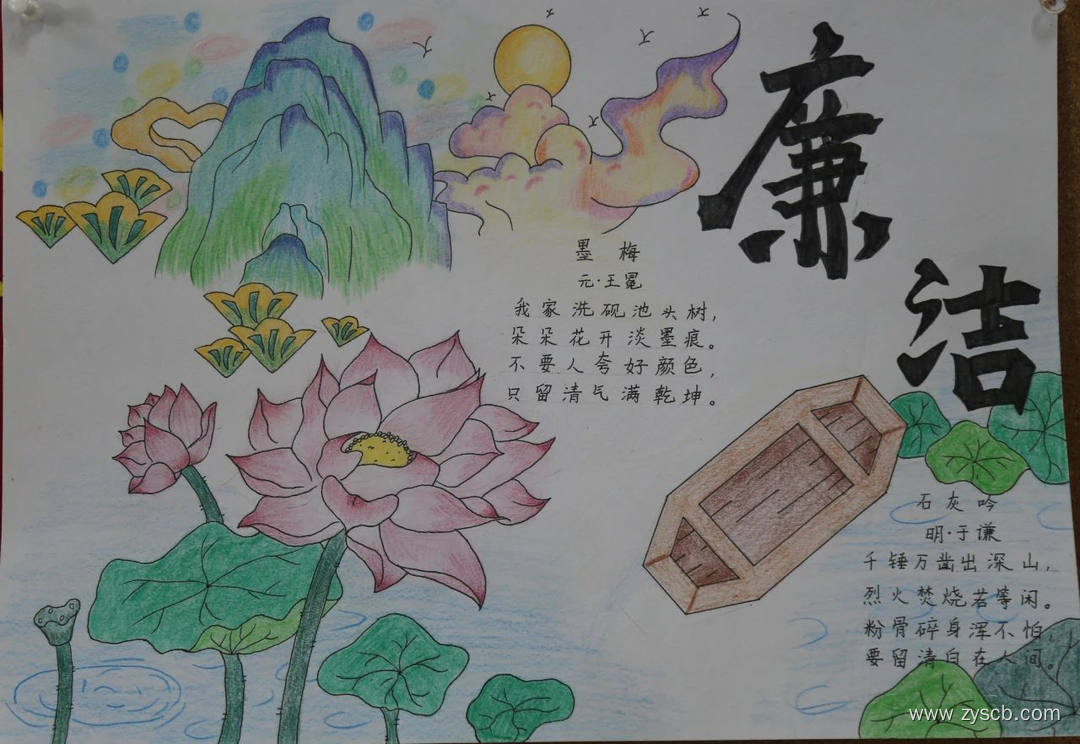 廉洁
墨梅
元·王冕
我家洗砚池头树，
朵朵花开淡墨痕。
不要人夸好颜色，
只留清气满乾坤。
石灰吟
明·于谦
千锤万凿出深山，
烈火焚烧若等闲。
粉骨碎身浑不怕，
要留清白在人间。
www.zyscb.com